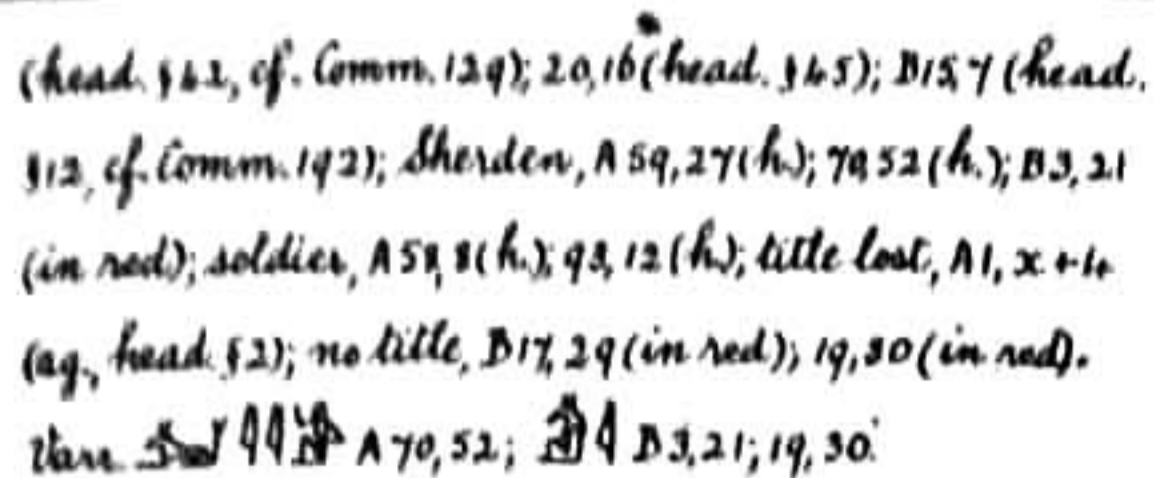 (head. §42, cf. Comm. 129); 20,16 (head. §45); B15,7 (head.
§12, cf. Comm. 192); Sherden, A59,27 (h.); 70,52 (h.); B3,21
(in red); soldier, A58,8 (h.); 93,12 (h.); title lost, A1, x+4
(ag., head. §2); no title, B17,29 (in red); 19,30 (in red).
Varr. A70,52; B3,21; 19,30.